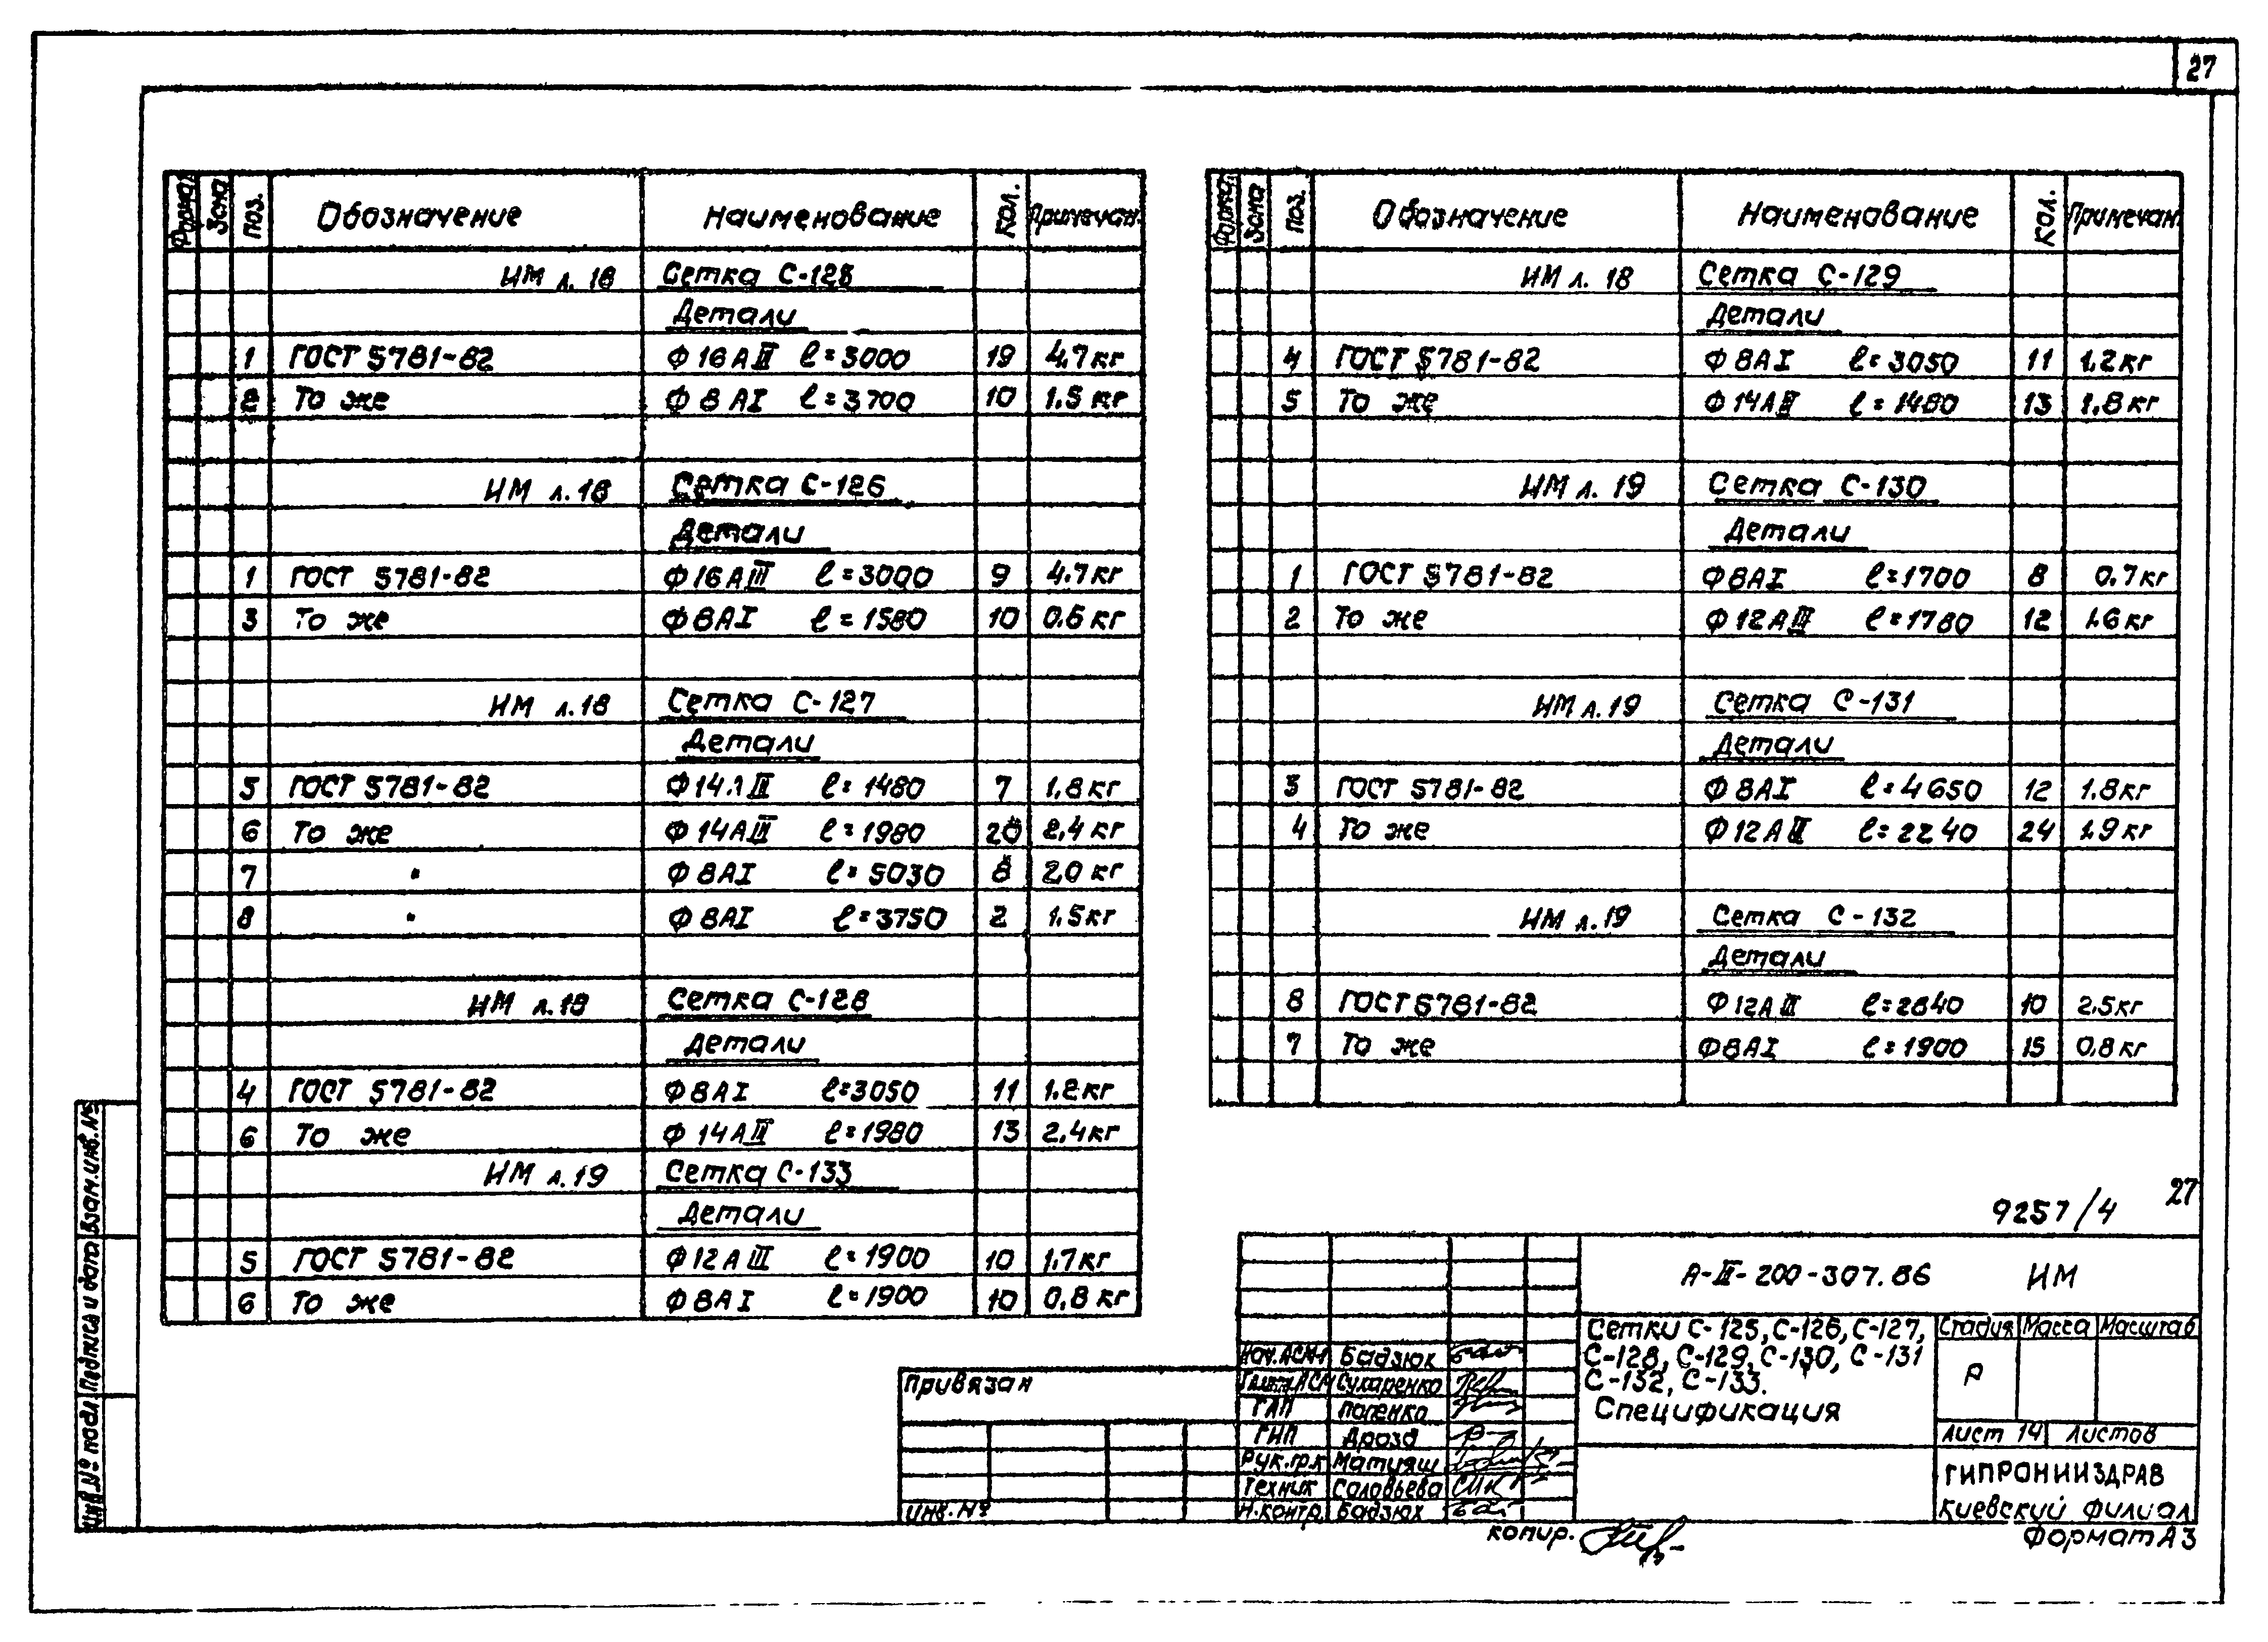 27
Формат Зона Поз. Обозначение Наименование Кол. Примечан.
ИМ л. 18 Сетка С-125
Детали
1 ГОСТ 5781-82 Ф 16 А III ℓ=3000 19 4,7 кг
2 То же Ф 8 АI ℓ=3700 10 1.5 кг
ИМ л.18 Сетка С-126
Детали
1 ГОСТ 5781-82 Ф16АIII ℓ=3000 9 4.7кг
3 То же Ф8АI ℓ=1580 10 0.6 кг
ИМ л.18 Сетка С-127
Детали
5 ГОСТ 5781-82 Ф14АIII ℓ=1480 7 1,8 кг
6 То же Ф 14АIII ℓ=1980 20 2,4 кг
7 " Ф 8АI ℓ=5030 8 2,0 кг
8 " Ф 8АI ℓ=3750 2 1.5кг
ИМ л.18 Сетка С-128
Детали
4 ГОСТ 5781-82 Ф8АI ℓ=3050 11 1.2кг
6 То же Ф 14АIII ℓ=1980 13 2,4кг
ИМ л.19 Сетка С-133
Детали
5 ГОСТ 5781-82 Ф12АIII ℓ=1900 10 1,7кг
6 То же Ф8АI ℓ=1900 10 0,8 кг
Формат Зона Поз. Обозначение Наименование Кол. Примечан.
ИМ л. 18 Сетка С-129
Детали
4 ГОСТ 5781-82 Ф 8АI ℓ=3050 11 1.2кг
5 То же Ф14АIII ℓ=1480 13 1.8 кг
ИМ л. 19 Сетка С-130
Детали
1 ГОСТ 5781-82 Ф8АI ℓ=1700 8 0.7 кг
2 То же Ф 12АIII ℓ=1780 12 1.6 кг
ИМ л.19 Сетка С-131
Детали
3 ГОСТ 5781-82 Ф 8АI ℓ=4650 12 1.8кг
4 То же Ф12АIII ℓ=2240 24 1.9 кг
ИМ л.19 Сетка С-132
Детали
8 ГОСТ 5781-82 Ф12АIII ℓ=2840 10 2.5кг
7 То же Ф8АI ℓ=1900 15 0.8 кг
9257/4 27
А-III-200-307.86 ИМ
Сетки С-125, С-126, С-127,
С-128, С-129, С-130, С-131
С-132, С-133.
Спецификация
Стадия Масса Масштаб
Р
Лист 14 Листов
ГИПРОНИИЗДРАВ
Киевский филиал
Нач.АСМ-1 Бадзюк
Гл.констр.АСМ Сухаренко
ГАП Попенко
ГИП Дрозд
Рук.гр.к Матияш
Техник Соловьева
Н.контр. Бадзюк
Привязан
Инв.№
копир.
Формат А3
Взам.инв.№
Подпись и дата
Инв.№ подл.